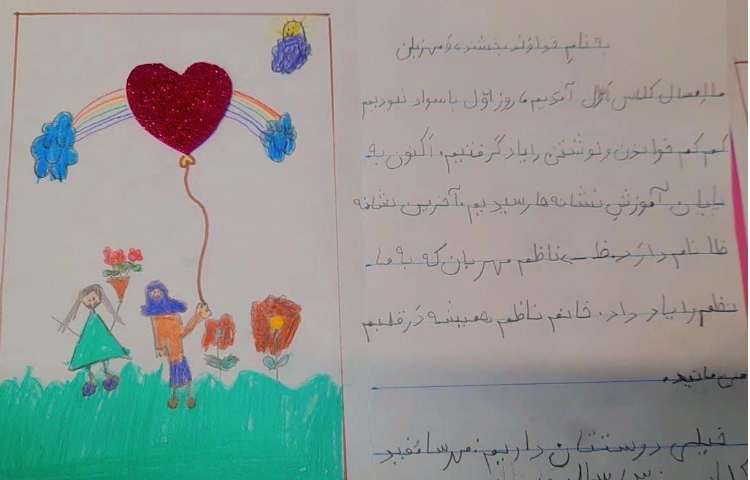 به نام خداوند بخشنده و مهربان
ما امسال کلاس اول آمدیم، روز اول باسواد نبودیم
کم کم خواندن و نوشتن را یاد گرفتیم. اکنون به
پایان آموزش نشانه‌ها رسیدیم. آخرین نشانه
ظا نام دارد. ظ ناظم مهربان که به ما
نظم را یاد داد. خانم ناظم همیشه در قلبم
می‌مانید.
خیلی دوستتان داریم.